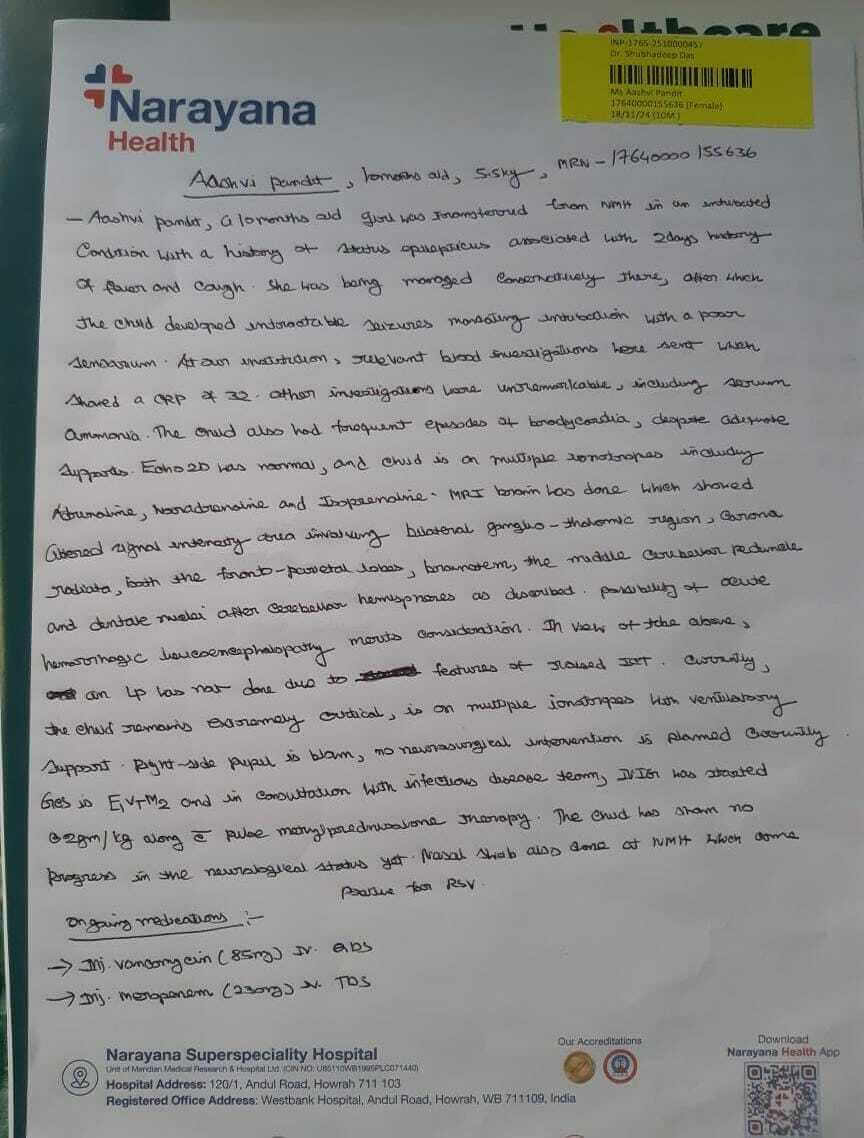 Healthcare
INP-1765-2510000457
Dr. Shubhadeep Das
Ms Aashvi Pandit
17640000155636 (Female)
18/11/24 (10M )
Narayana
Health
Aashvi Pandit, 10months old, 5.5kg, MRN - 17640000155636
- Aashvi Pandit, a 10months old girl was transferred from NMH in an intubated
condition with a history of status epilepticus associated with 2days history
of fever and cough. She was being managed conservatively there, after which
the child developed intractable seizures mandating intubation with a poor
sensorium. At our institution, relevant blood investigations were sent which
showed a CRP of 32. Other investigations were unremarkable, including serum
ammonia. The child also had frequent episodes of bradycardia, despite adequate
supports. Echo 2D was normal, and child is on multiple ionotropes including
Adrenaline, Noradrenaline and Isoprenaline. MRI brain was done which showed
altered signal intensity area involving bilateral ganglio-thalamic region, corona
radiata, both the fronto-parietal lobes, brainstem, the middle cerebellar peduncle
and dentate nuclei after cerebellar hemispheres as described. Possibility of acute
hemorrhagic leucoencephalopathy merits consideration. In view of the above,
an LP was not done due to features of raised ICT. Currently,
the child remains extremely critical, is on multiple ionotropes with ventilatory
support. Right-side pupil is blown, no neurosurgical intervention is planned currently.
GCS is E1VTM2 and in consultation with infectious disease team, IVIG was started
@2gm/kg along c̄ pulse methylprednisolone therapy. The child has shown no
progress in the neurological status yet. Nasal swab also done at NMH which came
positive for RSV.
Ongoing medications :-
→ Inj. Vancomycin (85mg) IV. QDS
→ Inj. Meropenem (230mg) IV. TDS
Narayana Superspeciality Hospital
Unit of Meridian Medical Research & Hospital Ltd. (CIN NO: U85110WB1995PLC071440)
Hospital Address: 120/1, Andul Road, Howrah 711 103
Registered Office Address: Westbank Hospital, Andul Road, Howrah, WB 711109, India
Our Accreditations
Download
Narayana Health App